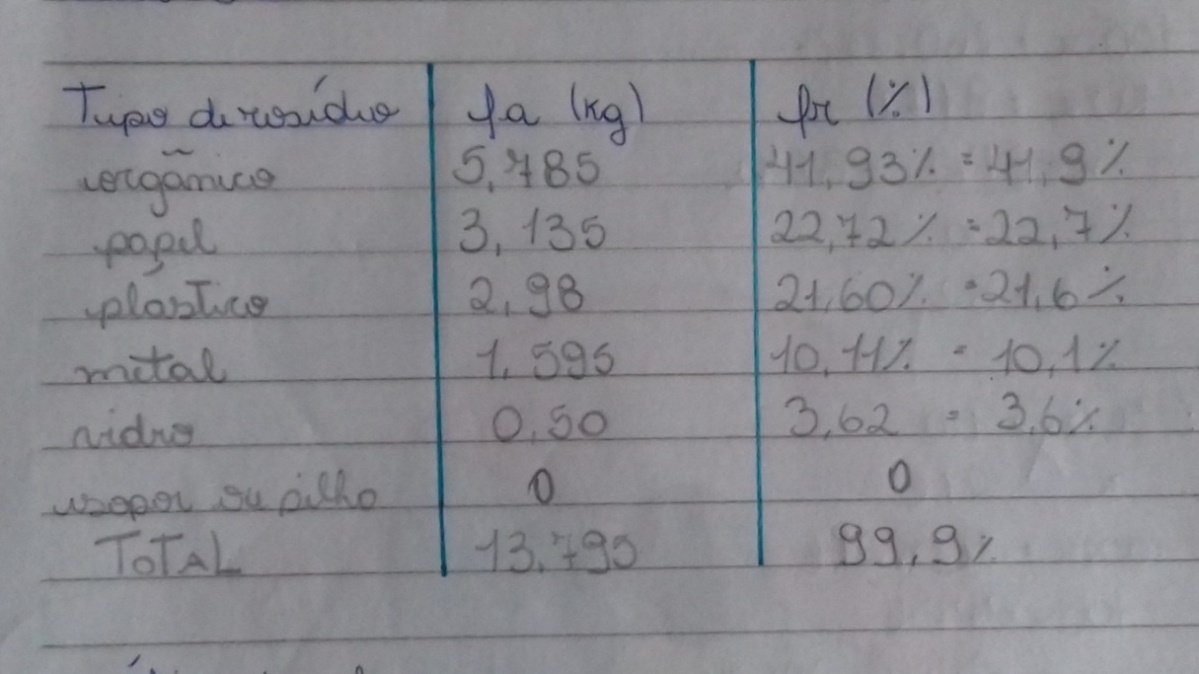 Tipo de resíduo fa (kg) fr (%)
orgânico 5,785 41,93% = 41,9%
papel 3,135 22,72% = 22,7%
plástico 2,98 21,60% = 21,6%
metal 1,395 10,11% = 10,1%
vidro 0,50 3,62 = 3,6%
isopor ou pilha 0 0
TOTAL 13,795 99,9%